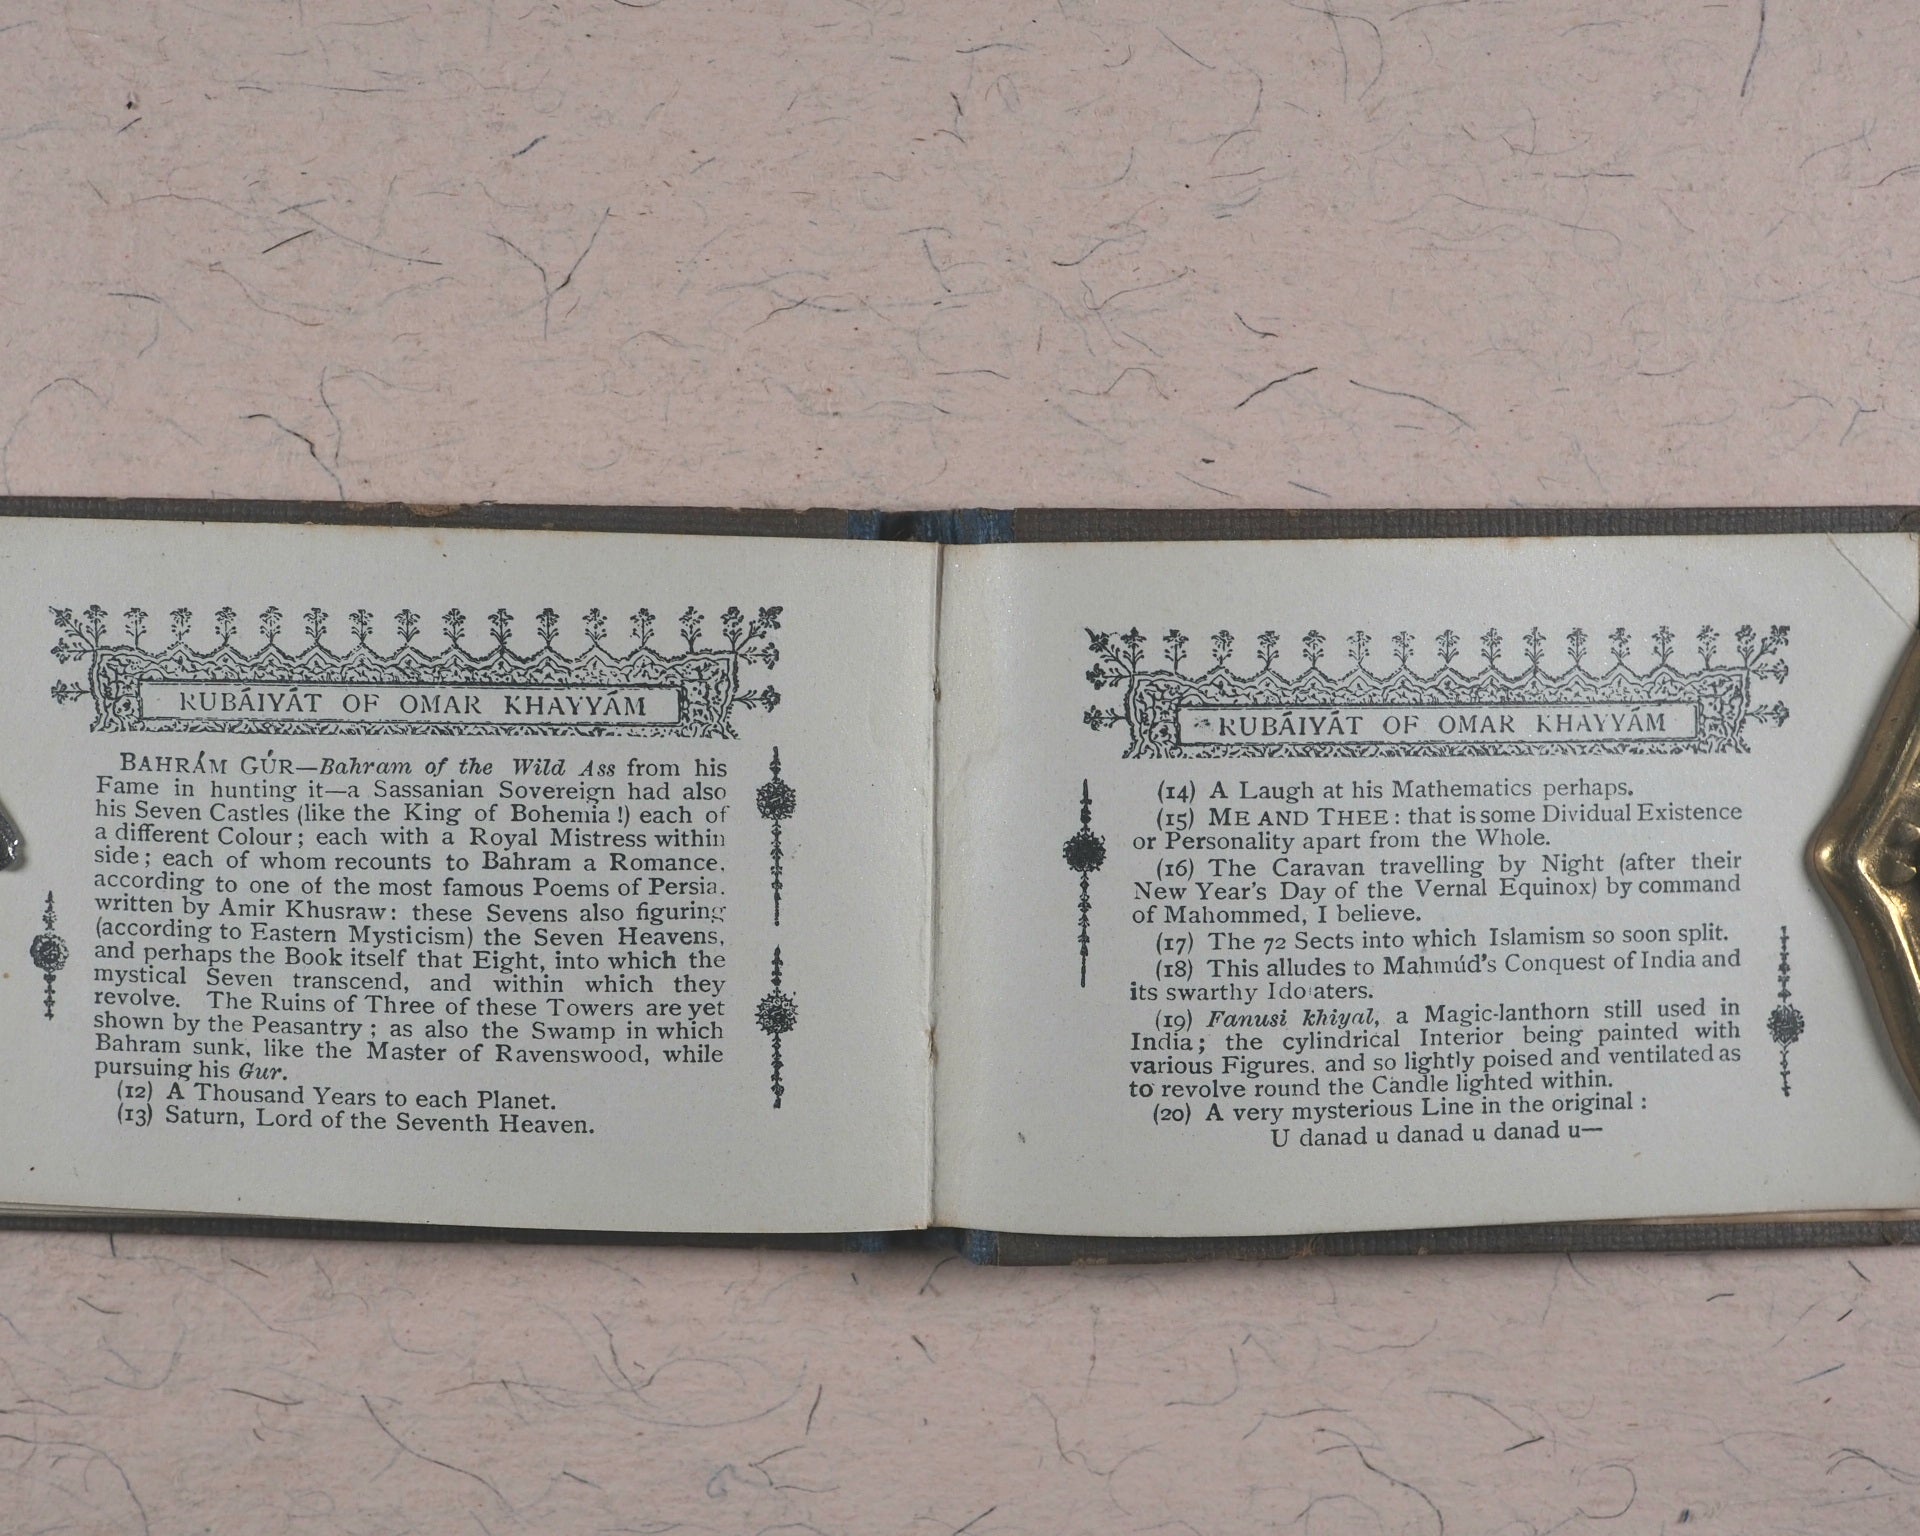 RUBÁIYÁT OF OMAR KHAYYÁM
BAHRÁM GÚR—Bahram of the Wild Ass from his
Fame in hunting it—a Sassanian Sovereign had also
his Seven Castles (like the King of Bohemia!) each of
a different Colour; each with a Royal Mistress within
side; each of whom recounts to Bahram a Romance,
according to one of the most famous Poems of Persia.
written by Amir Khusraw: these Sevens also figuring
(according to Eastern Mysticism) the Seven Heavens,
and perhaps the Book itself that Eight, into which the
mystical Seven transcend, and within which they
revolve. The Ruins of Three of these Towers are yet
shown by the Peasantry; as also the Swamp in which
Bahram sunk, like the Master of Ravenswood, while
pursuing his Gur.
(12) A Thousand Years to each Planet.
(13) Saturn, Lord of the Seventh Heaven.
RUBÁIYÁT OF OMAR KHAYYÁM
(14) A Laugh at his Mathematics perhaps.
(15) ME AND THEE: that is some Dividual Existence
or Personality apart from the Whole.
(16) The Caravan travelling by Night (after their
New Year's Day of the Vernal Equinox) by command
of Mahommed, I believe.
(17) The 72 Sects into which Islamism so soon split.
(18) This alludes to Mahmúd's Conquest of India and
its swarthy Idolaters.
(19) Fanusi khiyal, a Magic-lanthorn still used in
India; the cylindrical Interior being painted with
various Figures, and so lightly poised and ventilated as
to revolve round the Candle lighted within.
(20) A very mysterious Line in the original:
U danad u danad u danad u—